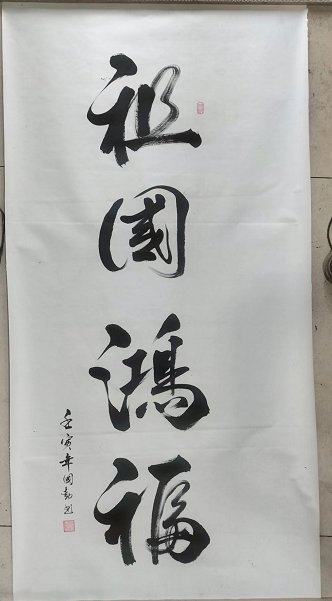 祖國鴻福
壬寅年國勳書